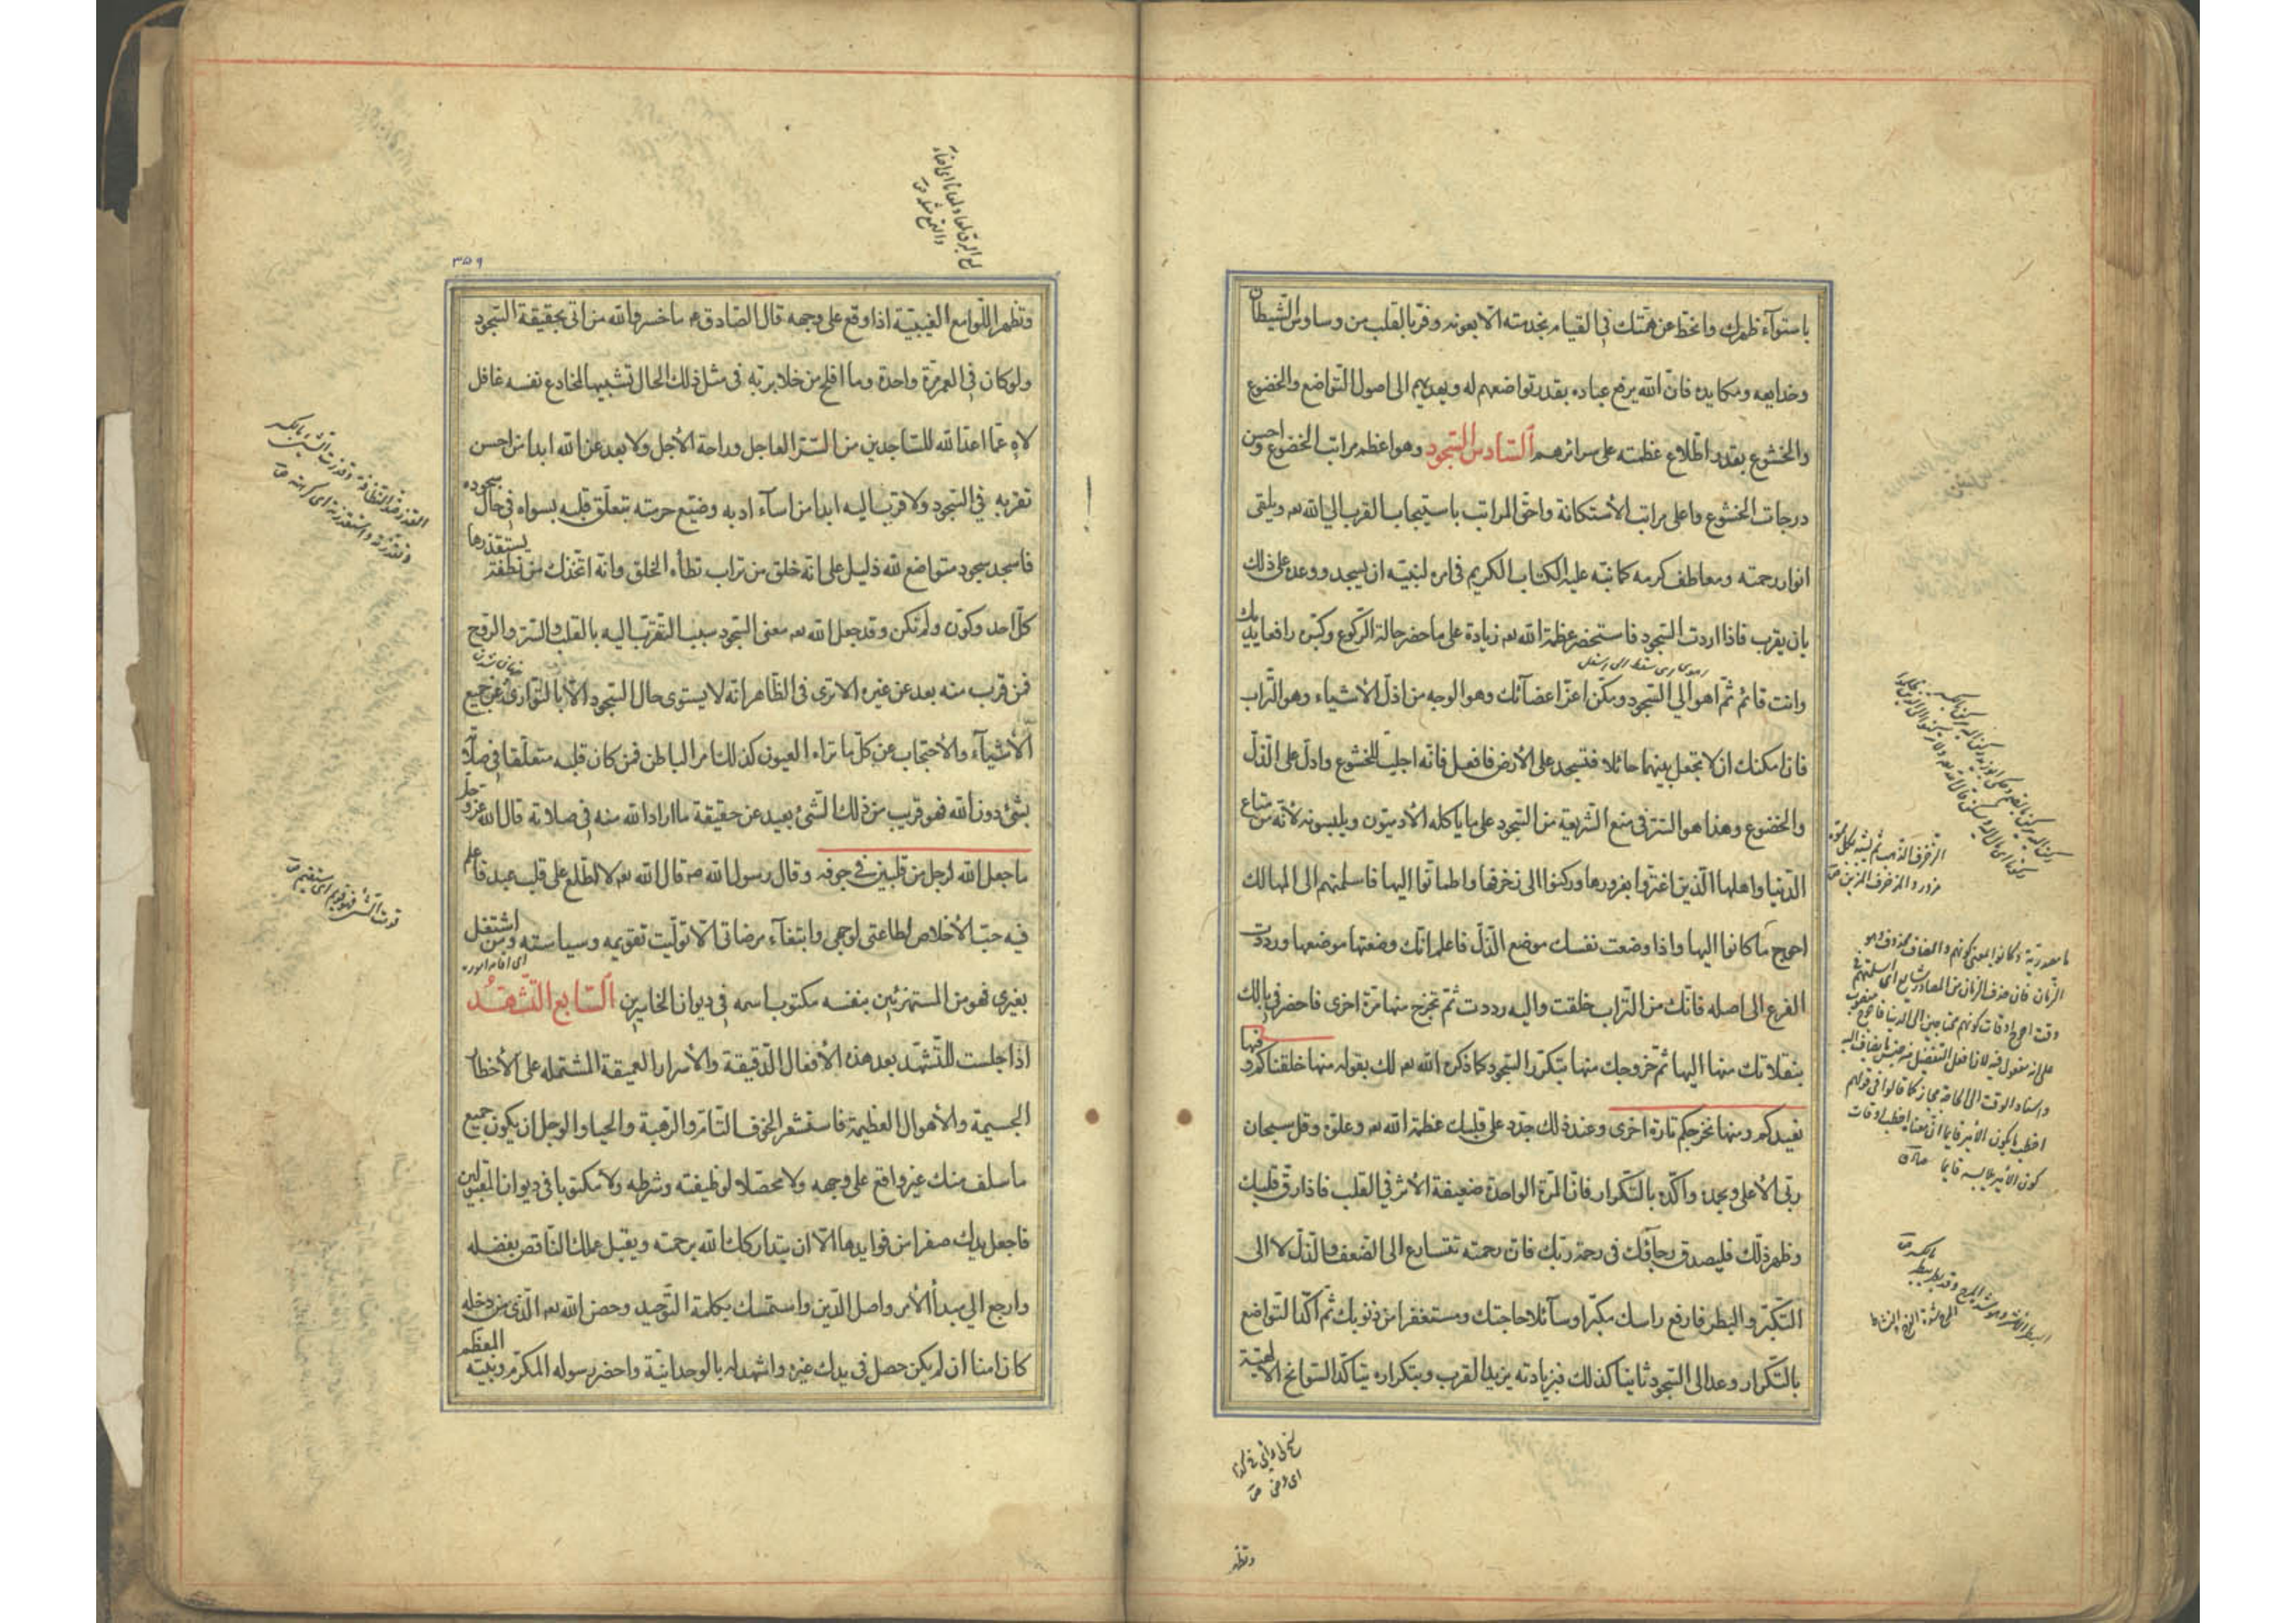 باستوآء ظهرك وانحط عن همتك في القيام بخدمته الا بعونه وفر بالقلب من وساوس الشيطان
وخدايعه ومكايده فان الله يرفع عباده بقدر تواضعهم له ويهديهم الى اصول التواضع والخضوع
والخشوع بقدر اطلاع عظمته على سرائرهم السادس السجود وهو اعظم مراتب الخضوع واحسن
درجات الخشوع واعلى مراتب الأستكانة واحق المراتب باستيجاب القرب الى الله تعه ويلقى
انوار رحمته ومعاطف كرمه كما نبه عليه الكتاب الكريم في امره لنبيه ان يسجد ووعده على ذلك
بان يقرب فاذا اردت السجود فاستحضر عظمة الله تعه زيادة على ما حضر حالة الركوع وكبره رافعا يديك
وانت قائم ثم اهو الى السجود ومكن اعز اعضآئك وهو الوجه من اذل الأشياء وهو التراب
فان امكنك ان لا تجعل بينهما حائلا فتسجد على الأرض فافعل فانه اجلب للخشوع وادل على الذل
والخضوع وهذا هو السر في منع الشريعة من السجود على ما ياكله الأدميون ويلبسونه لأنه من متاع
الدنيا واهلها الذين اغتروا بغرورها وركنوا الى زخرفها واطمانوا اليها فاسلمتهم الى المهالك
احوج ما كانوا اليها واذا وضعت نفسك موضع الذل فاعلم انك وضعتها موضعها ورددت
الفرع الى اصله فانك من التراب خلقت واليه رددت ثم تخرج منها مرة اخرى فاحضر في بالك
بنقلاتك منها اليها ثم خروجك منها بتكرر السجود كما ذكره الله تعه لك بقوله منها خلقناكم وفيها
نعيدكم ومنها نخرجكم تارة اخرى وعند ذلك جدد على قلبك عظمة الله تعه وعلوه وقل سبحان
ربي الأعلى وبحمده واكده بالتكرار فان المرة الواحدة ضعيفة الأثر في القلب فاذا رق قلبك
وظهر ذلك فليصدق رجآؤك في رحمة ربك فان رحمته تتسارع الى الضعف والذل لا الى
التكبر والبطر فارفع راسك مكبرا وسآئلا حاجتك ومستغفرا من ذنوبك ثم اكد التواضع
بالتكرار وعد الى السجود ثانيا كذلك فبزيادته يزيد القرب وبتكراره يتاكد السوانح الالهية
وتظهر
٣٥٩
وتظهر اللوامع الغيبية اذا وقع على وجهه قال الصادق ع ما خسر والله من اتى بحقيقة السجود
ولو كان في العمر مرة واحدة وما افلح من خلا بربه في مثل ذلك الحال تشبيها لمخادع نفسه غافل
لاه عما اعد الله للساجدين من السر العاجل وراحة الأجل ولا بعد عن الله ابدا من احسن
تقربه في السجود ولا قرب اليه ابدا من اسآء ادبه وضيع حرمته بتعلق قلبه بسواه في حال سجوده
فاسجد سجود متواضع لله ذليل على انه خلق من تراب تطأه الخلق وانه اتخذك من نطفة يستقذرها
كل احد وكون ولم تكن وقد جعل الله تعه معنى السجود سبب التقرب اليه بالقلب والسر والروح
فمن قرب منه بعد عن غيره الا ترى في الظاهر انه لا يستوى حال السجود الا بالتوارى عن جميع
الأشيآء والأحتجاب عن كل ما تراه العيون كذلك امر الباطن فمن كان قلبه متعلقا في صلاته
بشئ دون الله فهو قريب من ذلك الشئ بعيد عن حقيقة ما اراد الله منه في صلاته قال الله عز وجل
ما جعل الله لرجل من قلبين في جوفه وقال رسول الله صه قال الله تعه لا اطلع على قلب عبد فاعلم
فيه حب الأخلاص لطاعتي لوجهي وابتغآء مرضاتي الا توليت تقويمه وسياسته ومن اشتغل
بغيري فهو من المستهزئين بنفسه مكتوب اسمه في ديوان الخاسرين السابع التشهد
اذا جلست للتشهد بعد هذه الأفعال الدقيقة والأسرار العميقة المشتمله على الأخطار
الجسيمة والأهوال العظيمة فاستشعر الخوف التام والرهبة والحيا والوجل ان يكون جميع
ما سلف منك غير واقع على وجهه ولا محصلا لوظيفته وشرطه ولا مكتوبا في ديوان المقبولين
فاجعل يدك صفرا من فوايدها الا ان يتداركك الله برحمته ويقبل عملك الناقص بفضله
وارجع الى مبدأ الأمر واصل الدين واستمسك بكلمة التوحيد وحصن الله تعه الذى من دخله
كان امنا ان لم يكن حصل في يدك غيره واشهد له بالوحدانية واحضر رسوله المكرم ونبيه المعظم